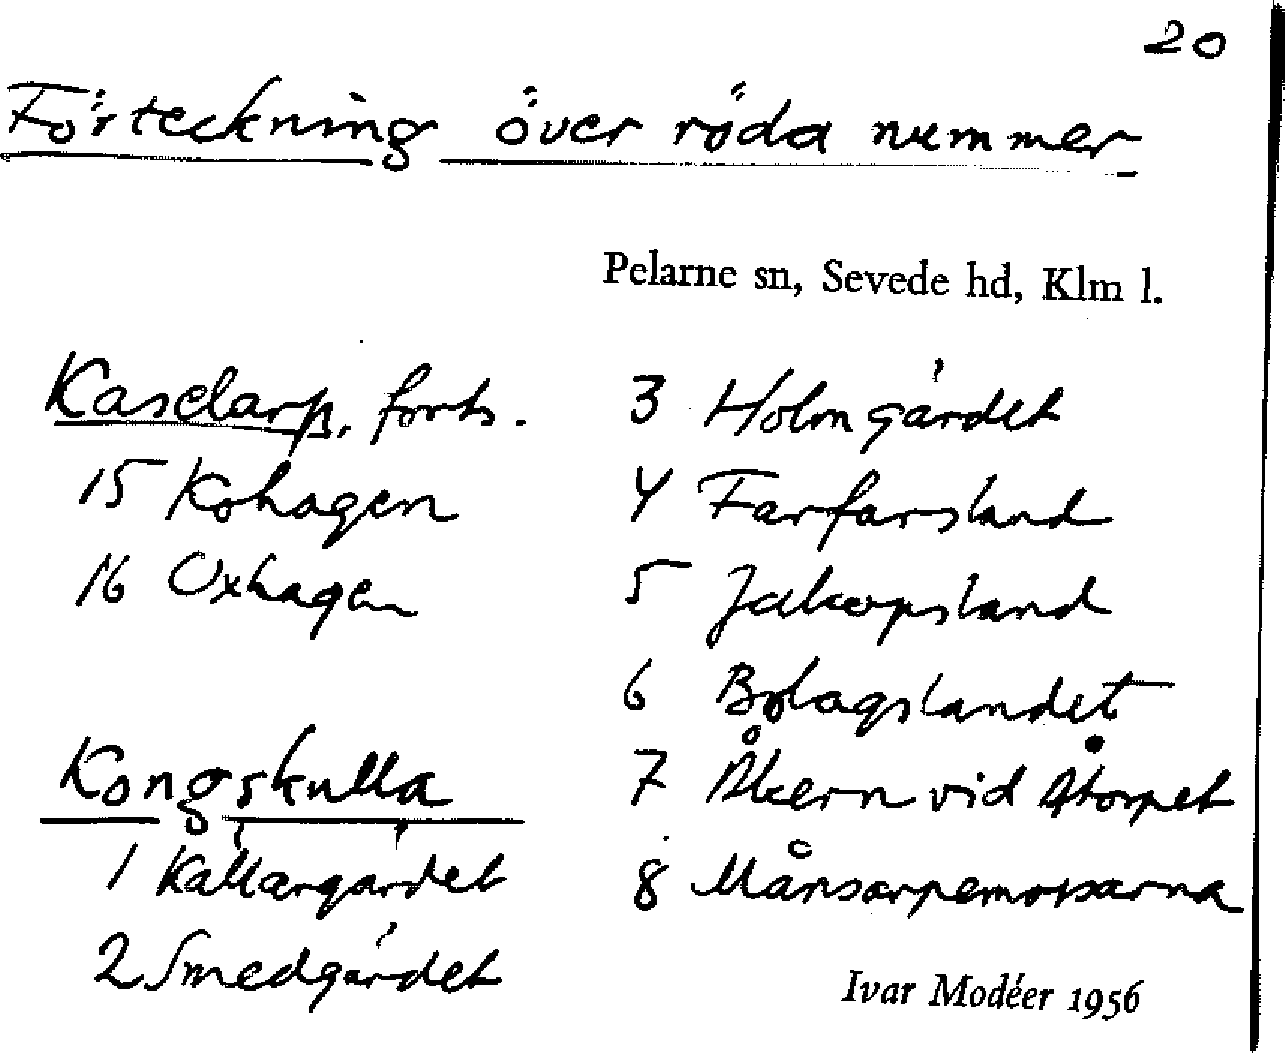 20
Förteckning över röda nummer
Pelarne sn, Sevede hd, Klm l.
Kaselarp, forts.
15 Kohagen
16 Oxhagen
Kongskulla
1 Källargärdet
2 Smedgärdet
3 Holmgärdet
4 Farfarsland
5 Jakopsland
6 Bolagslandet
7 Åkern vid Åtorpet
8 Månsarpemossarna
Ivar Modéer 1956